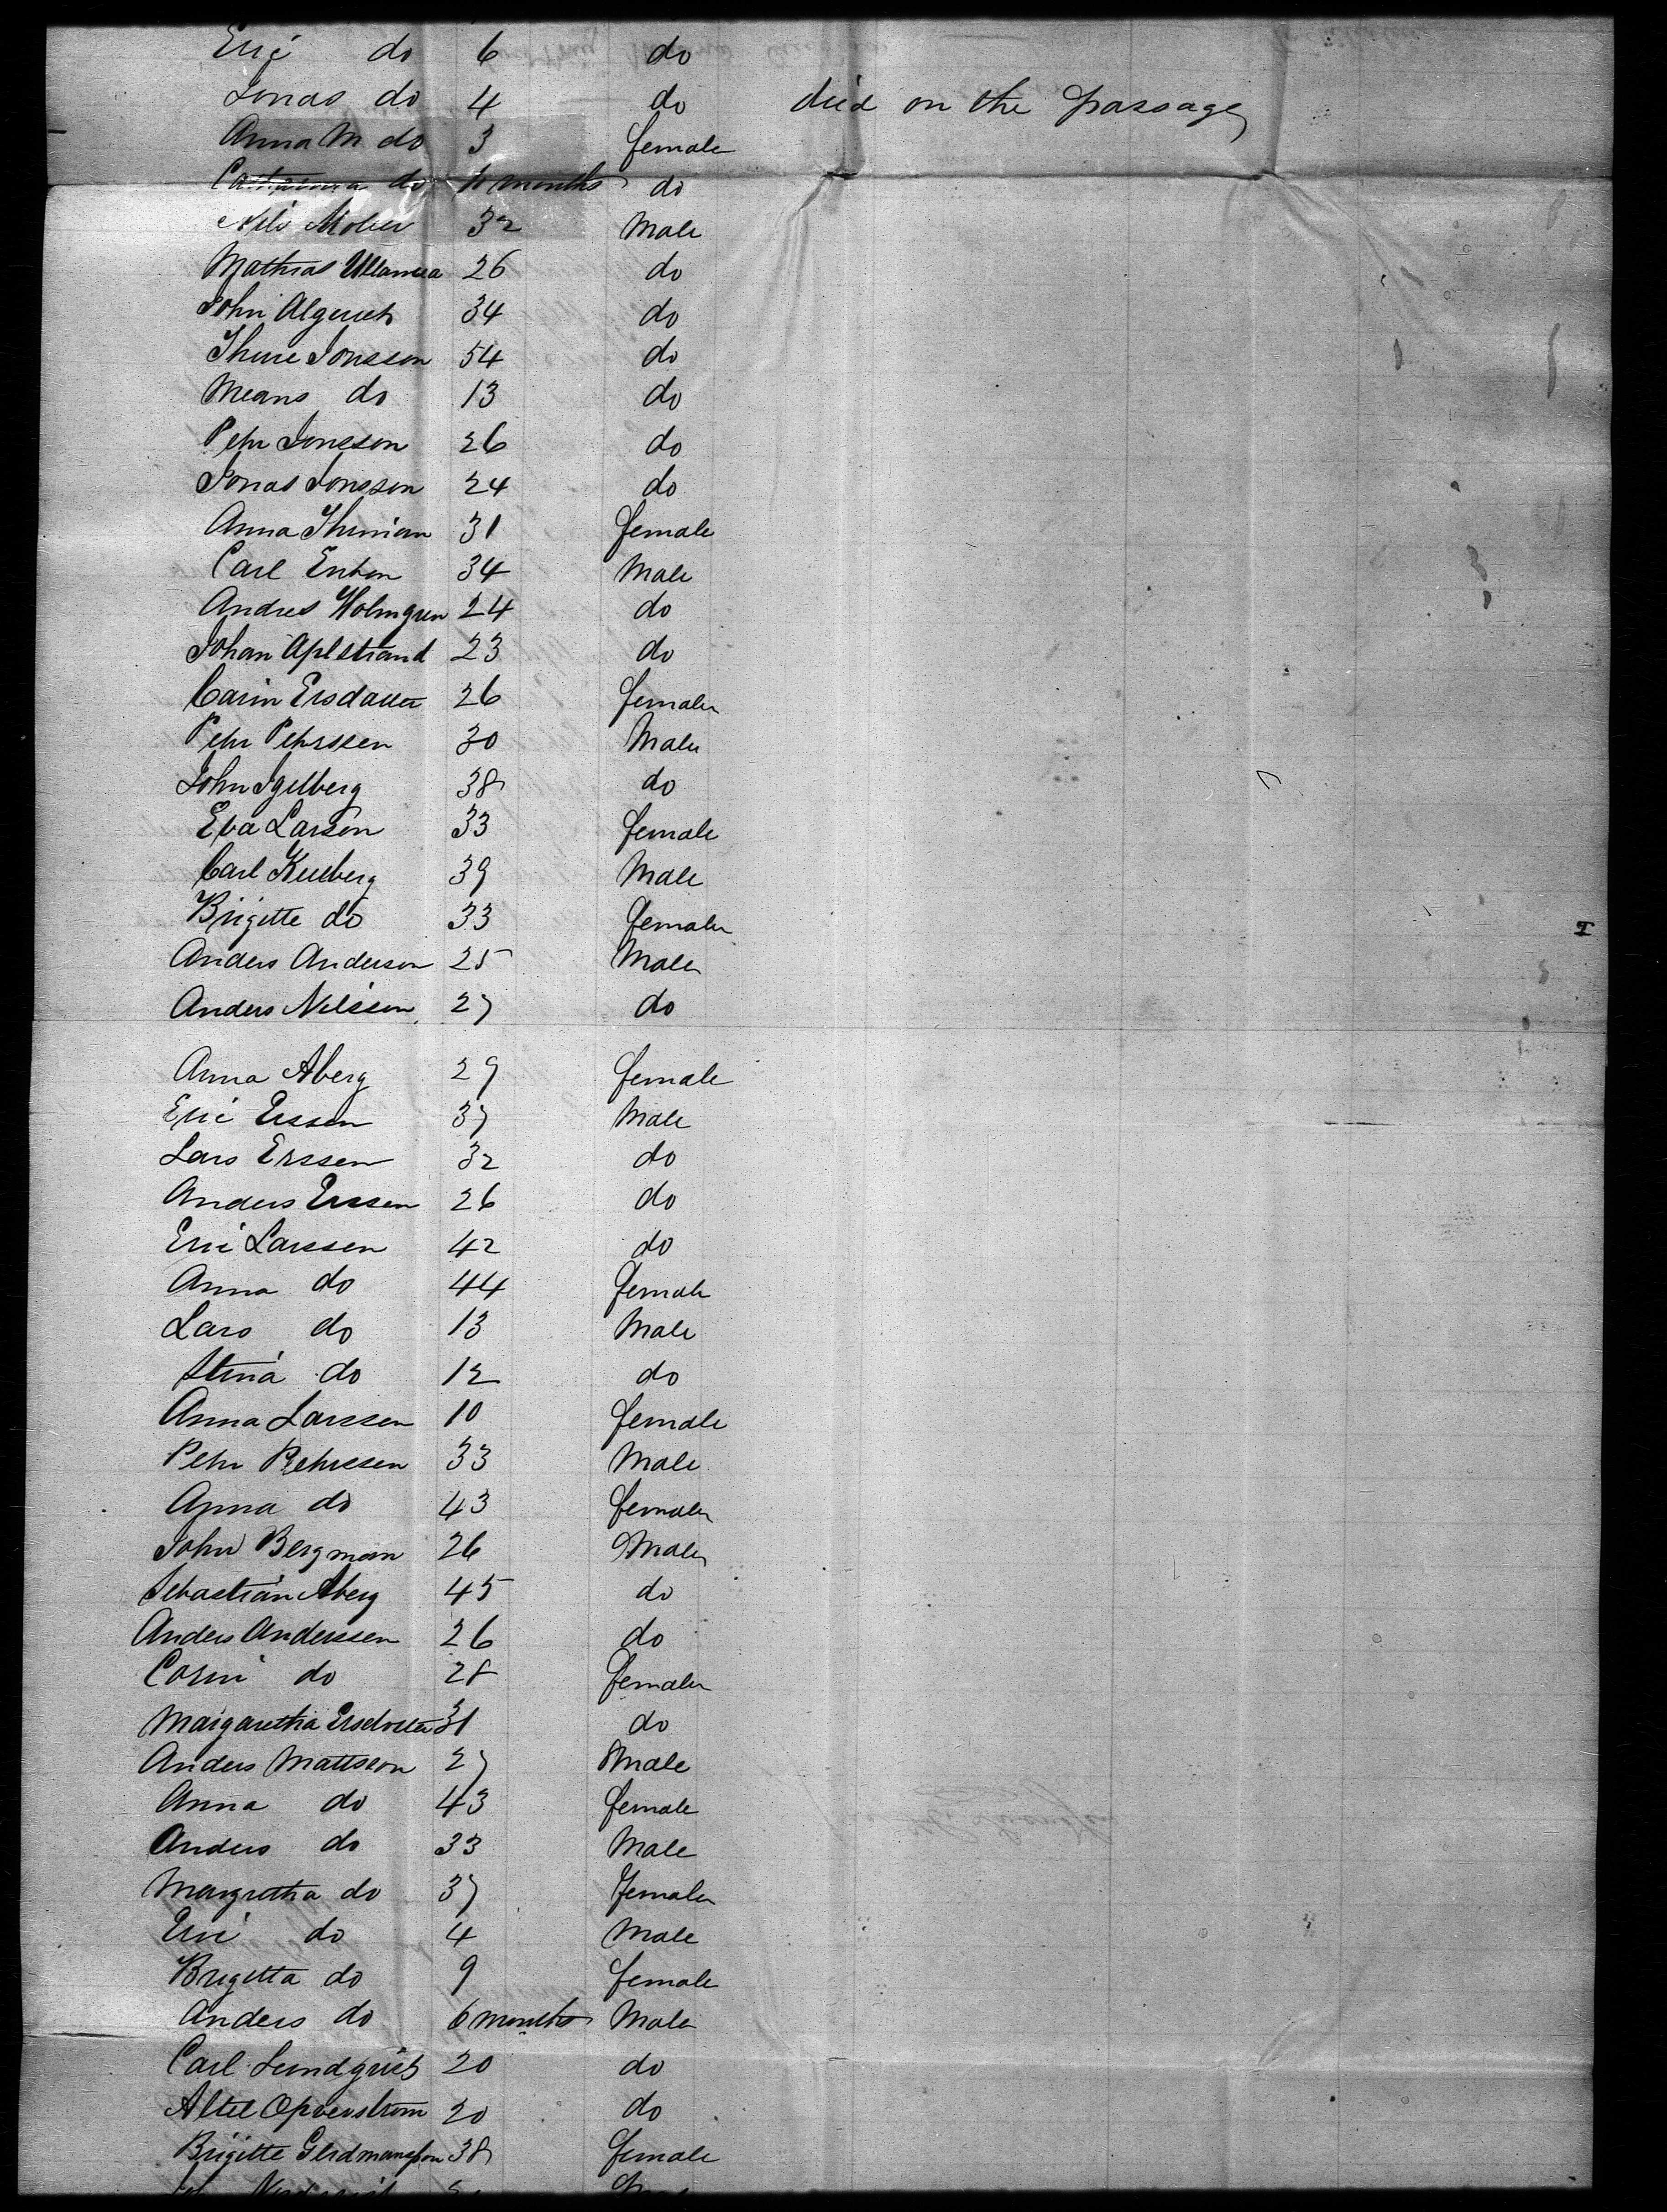 Eric do 6 do
Jonas do 4 do died on the passage
Anna M do 3 female
Catharina do months do
Nils Moller 32 Male
Mathias 26 do
John 34 do
Thure Jonsson 54 do
Means do 13 do
Pehr Jonsson 26 do
Jonas Jonsson 24 do
Anna 31 female
Carl 34 Male
Andres Holmgren 24 do
Johan Aplstrand 23 do
Carin Ersdatter 26 female
Pehr Pehrssen 30 Male
John Igelberg 38 do
Eva Larson 33 female
Carl 39 Male
Brigitte do 33 female
Anders Anderson 25 Male
Anders Nilsson 27 do
Anna Aberg 29 female
Eric Erssen 37 Male
Lars Erssen 32 do
Anders Erssen 26 do
Eric Larssen 42 do
Anna do 44 female
Lars do 13 Male
Stina do 12 do
Anna Larssen 10 female
Pehr Pehrssen 33 Male
Anna do 43 female
John Bergman 26 Male
Sebastian Aberg 45 do
Anders Anderssen 26 do
Carin do 28 female
Margaretha Ersdotter 31 do
Anders Mattsson 27 Male
Anna do 43 female
Anders do 33 Male
Margretha do 37 female
Eric do 4 Male
Brigitta do 9 female
Anders do 6 months Male
Carl Lundquist 20 do
20 do
Brigitte 38 female